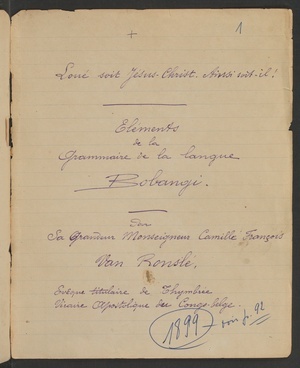 1
Loué soit Jesus-Christ. Ainsi soit-il!
Elements
de la
Grammaire de la langue
Bobangi.
Sa Grandeur Monseigneur Camille François
Van Ronslé,
Evêque titulaire de Thymbrie
Vicaire Apostolique du Congo belge.
1899